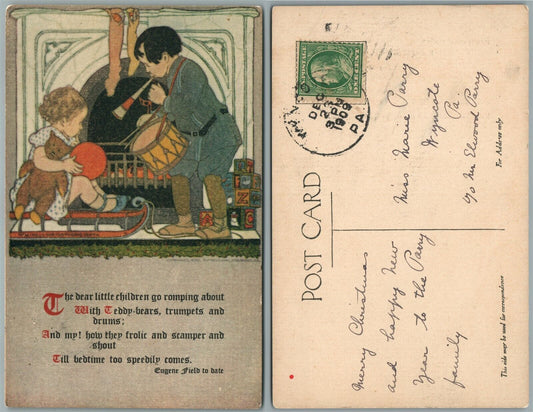 The dear little children go romping about
With Teddy-bears, trumpets and
drums;
And my! how they frolic and scamper and
shout
Till bedtime too speedily comes.
Eugene Field to date
DEC
23
3 PM
1909
PA
POST CARD
Miss Marie Parry
Wyncote
Pa.
c/o Mr Elwood Parry
For Address only
Merry Christmas
and happy New
Year to the Parry
family
This side may be used for correspondence